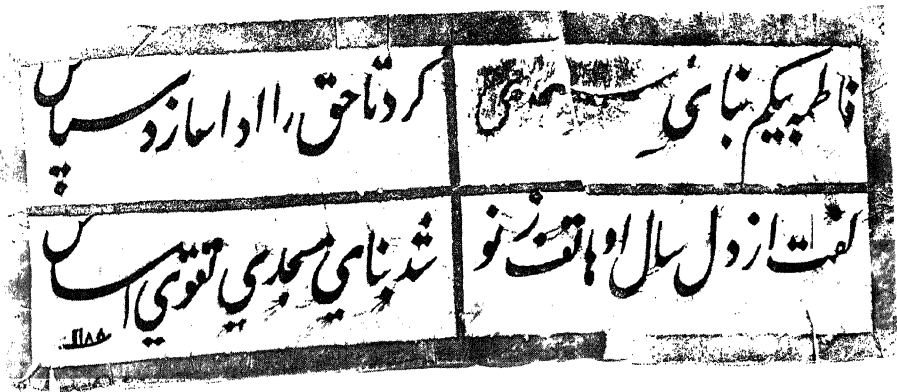 فاطمه بیکم بنای
کرد تا حق را ادا سازد سپاس
کفت از دل سال او هاتف ز نو
شد بنای مسجدی تقوی اساس